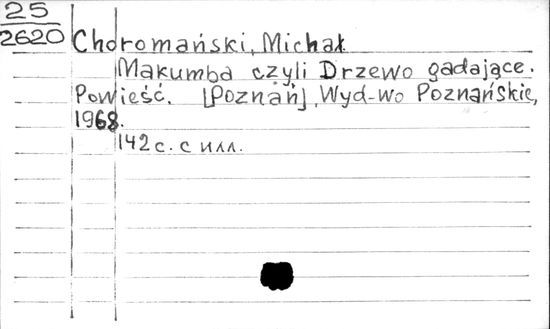 25
2620
Choromański, Michał
Makumba czyli Drzewo gadające.
Powieść. [Poznań], Wyd-wo Poznańskie,
1968.
142 с. с илл.